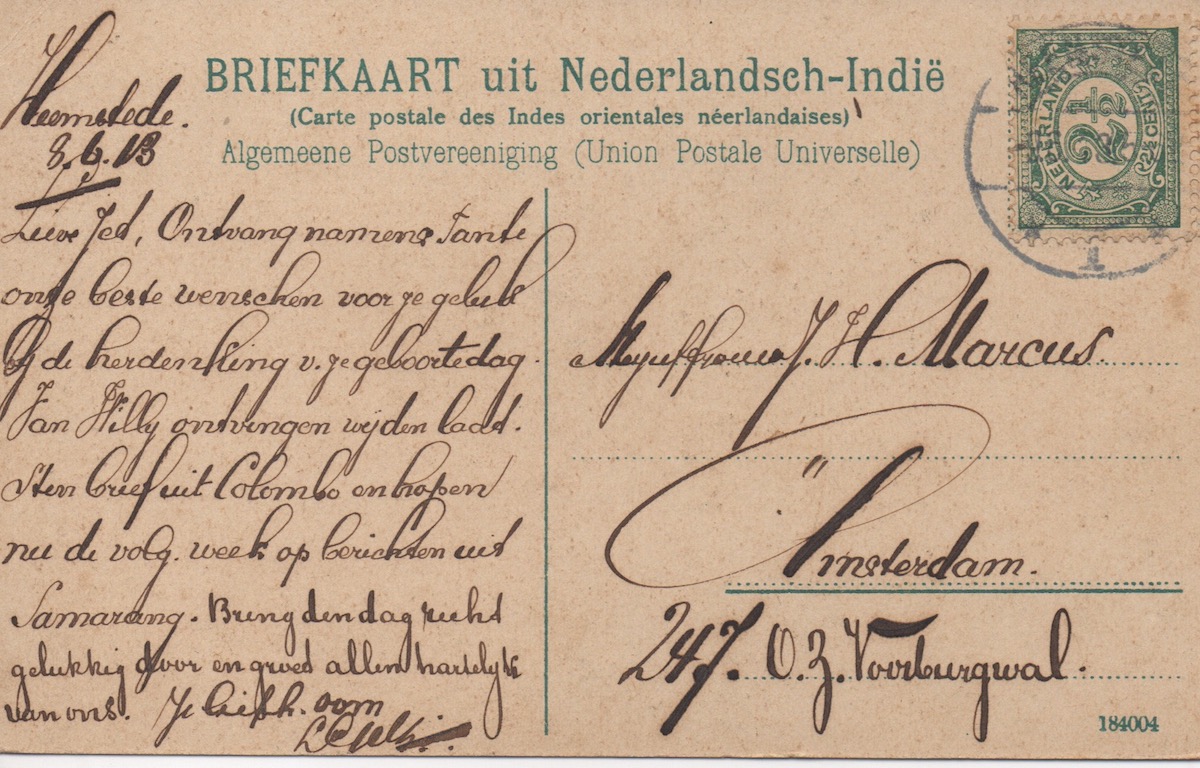 BRIEFKAART uit Nederlandsch-Indië
(Carte postale des Indes orientales néerlandaises)
Algemeene Postvereeniging (Union Postale Universelle)
Heemstede.
8.6.13
Lieve Jet, Ontvang namens Tante
onze beste wenschen voor je geluk
bij de herdenking v. je geboortedag.
Van Willy ontvingen wij den laat-
sten brief uit Colombo en hopen
nu de volg. week op berichten uit
Samarang. Breng den dag recht
gelukkig door en groet allen hartelijk
van ons. Je liefh. oom
NEDERLAND
2½
2½ CENT
1
Mejuffrouw J. H. Marcus.
Amsterdam.
247. O. Z. Voorburgwal.
184004